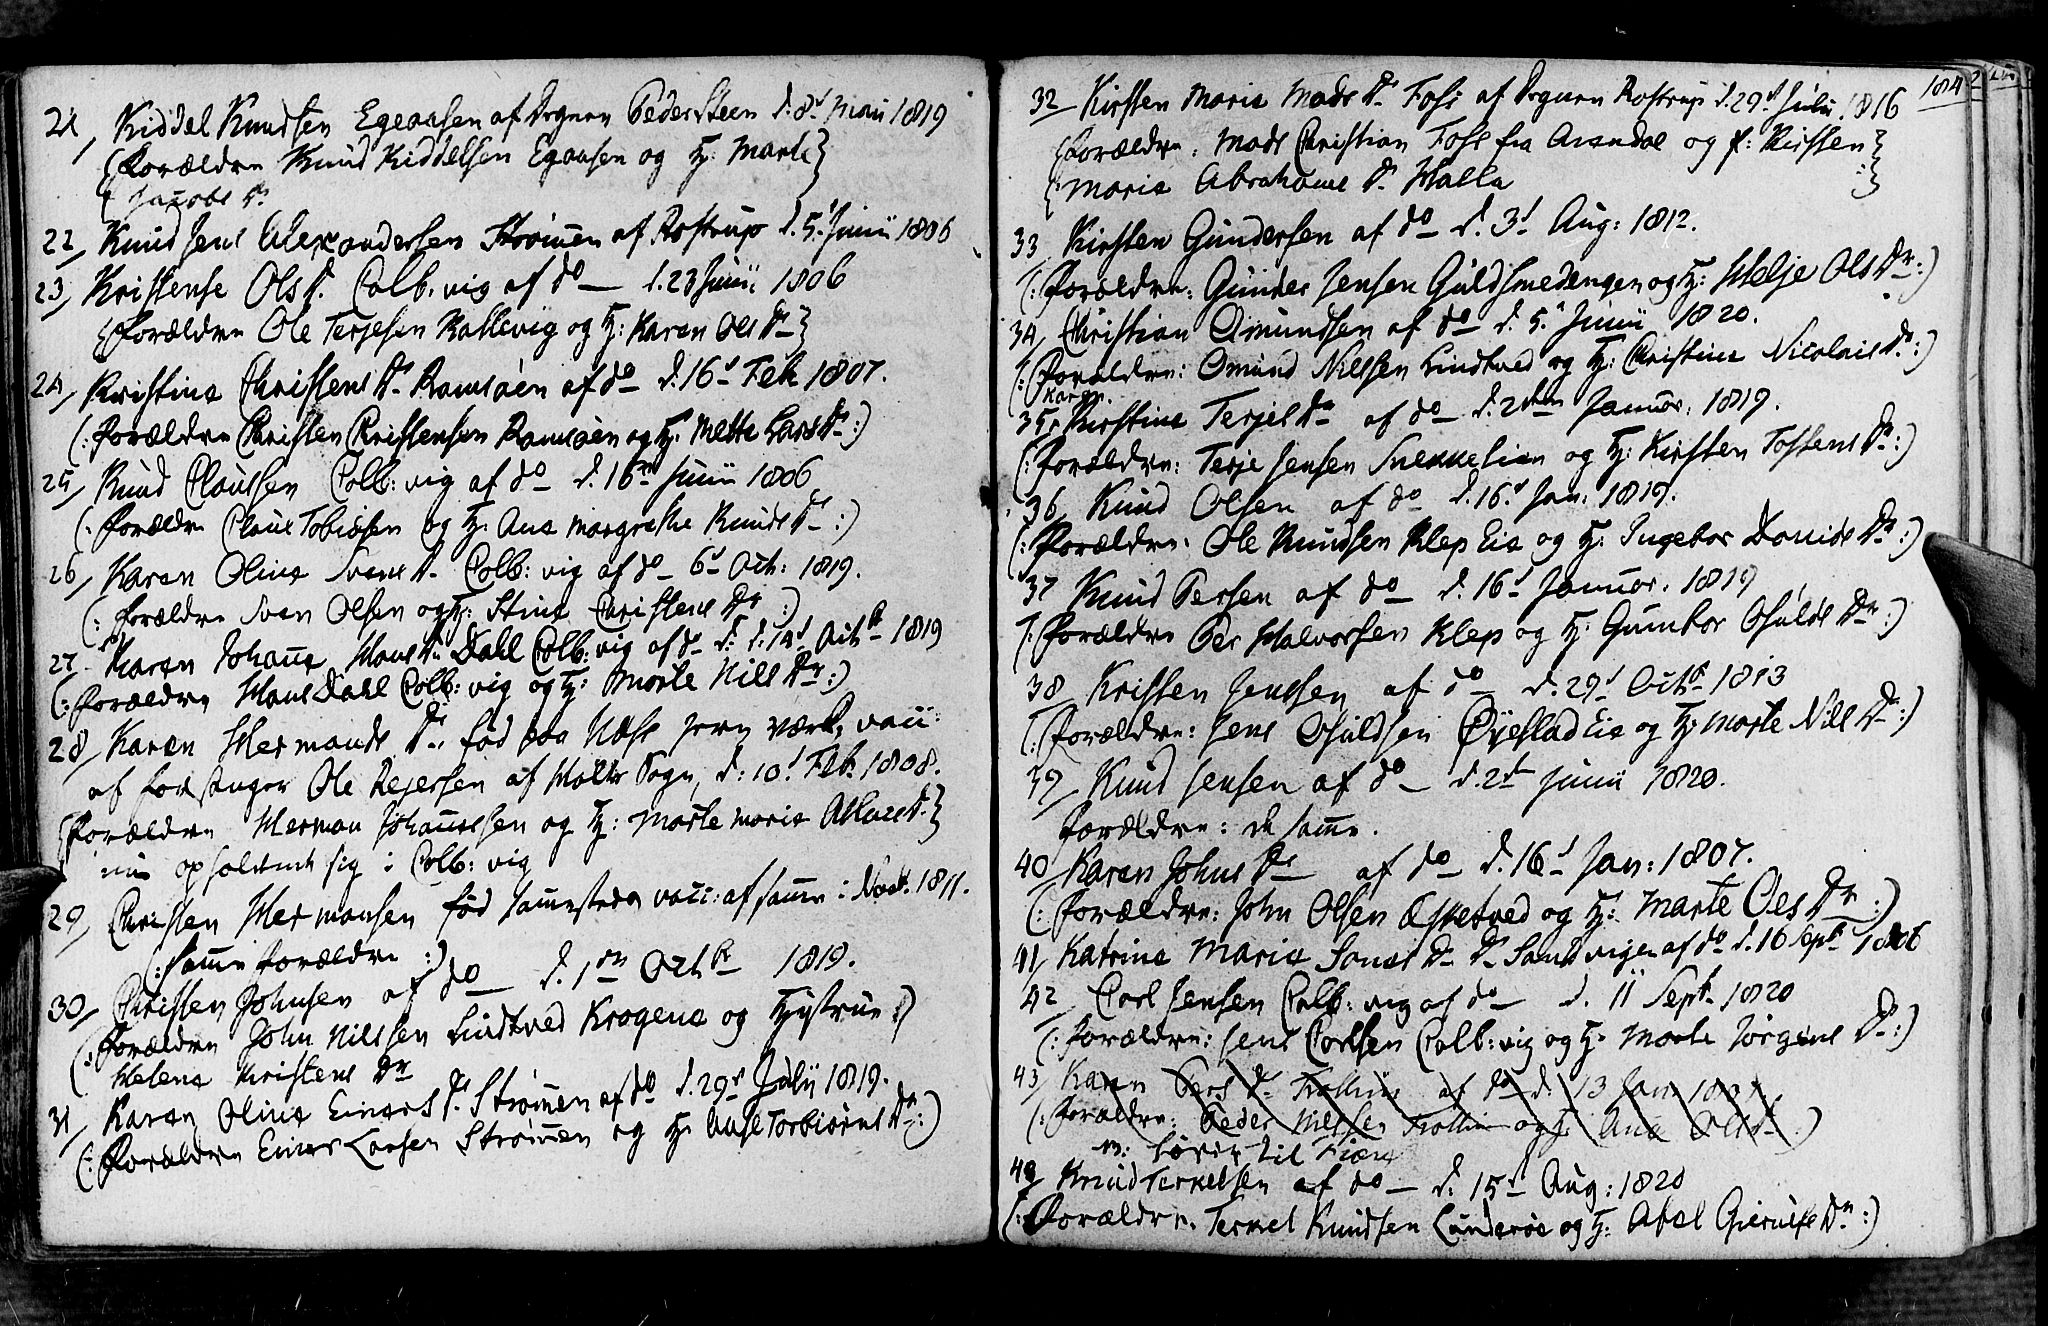 21, Kiddel Knudsen Egeaasen af Dognen Peder Steen d. 8d Maii 1819
(Forældre Knud Kiddelsen Egaasen og H: Marte
Jacobs Dr
22, Knud Jens Alexandersen Strømmen af Rostrup d. 5 Junii 1806
23, Kristense Ols D. Colb:vig af do d. 23 Junii 1806
(Forældre Ole Terjesen Kallevig og H: Karen Ols Dr
24, Kristine Christens Dr Ramsøen af do d. 16d Feb 1807.
(: Forældre Christen Christensen Ramsøen og H. Mette Lars Dr :)
25, Knud Clausen Colb:vig af do d. 16 Junii 1806
(: Forældre Claus Tobiasen og H. Ana Margrethe Knuds Dr :)
26, Karen Oline Svens D. Colb:vig af do 6d Oct: 1819.
(: Forældre Sven Olsen og H: Stine Christens Dr :)
27 Karen Johane Hans D. Dahl Colb:vig af do d. 14d Octb 1819
(: Forældre Hans Dahl Colb:vig og H: Marte Nils Dr :)
28, Karen Hermands Dr, fød paa Næss Jern værk, vacc:
af Forstanger Ole Rejersen af Holte Sogn, d: 10d Feb. 1808.
(Forældre Herman Johannesen og H: Marte Marie D.
nu opholdende sig i Colb:vig
29, Christen Hermansen fød sammesteds vacc: af samme i 1811.
(: samme Forældre :)
30, Christen Johnsen af do d. 1 Octbr 1819.
(: Forældre John Nilssen Lindtved Kragene og Hustrue :)
Helene Kristens Dr
31, Karen Oline Einers D. Strømmen af do d. 29d Julii 1819.
(: Forældre Einer Larsen Strømmen og H. Anse Torbiørns Dr :)
184
32 Kirsten Marie Mads D. Foss af Dognen Rostrup d. 29d Julii 1816
(Forældre: Mads Christian Foss fra Arendal og H: Kirsten
Marie Abrahams D. Halla
33 Kirsten Gundersen af do d. 3d Aug: 1812.
(: Forældre: Gunder Jensen Guldsmedengen og H: Helje Ols Dr :)
34, Christian Omundsen af do d. 5. Junii 1820.
(: Forældre: Omund Nielsen Lindtved og H: Christine Nicolais Dr :)
35, Kirstine Terjes Dr af do d. 2den Januar: 1819.
(: Forældre: Terje Jensen Snekkelien og H: Kirsten Tostens Dr :)
36, Knud Olsen af do d. 16d Jan: 1819.
(: Forældre: Ole Knudsen Klep Eie og H: Ingebor Davids Dr :)
37 Knud Persen af do d. 16d Januar: 1819
(: Forældre Per Halvorsen Klep og H. Gunbor Osulds Dr :)
38, Kristen Jenssen af do d. 29d Octb 1813
(: Forældre: Jens Osuldsen Øyestad Eie og H: Marte Nils Dr :)
39, Knud Jensen af do d. 2d Junii 1820.
Forældre: de samme.
40, Karen Johns Dr af do d. 16d Jan: 1807.
(: Forældre: John Olsen Æsketved og H: Marte Ols Dr :)
41, Katrine Marie Dr Sandvigen af do d. 16 Sept 1806
42, Carl Jensen Colb:vig af do d. 11 Sept. 1820
(: Forældre: Jens Carlsen Colb:vig og H: Marte Jørgens Dr :)
43, Karen Pers D. Trollun af do d. 13 Jan:
(: Forældre: Peder Nielsen og H: Ane Ols D. :)
hører til Fiære
43, Knud Terkelsen af do d. 15d Aug: 1820
(: Forældre. Terkel Knudsen Lunderøe og H: Abel Dr :)